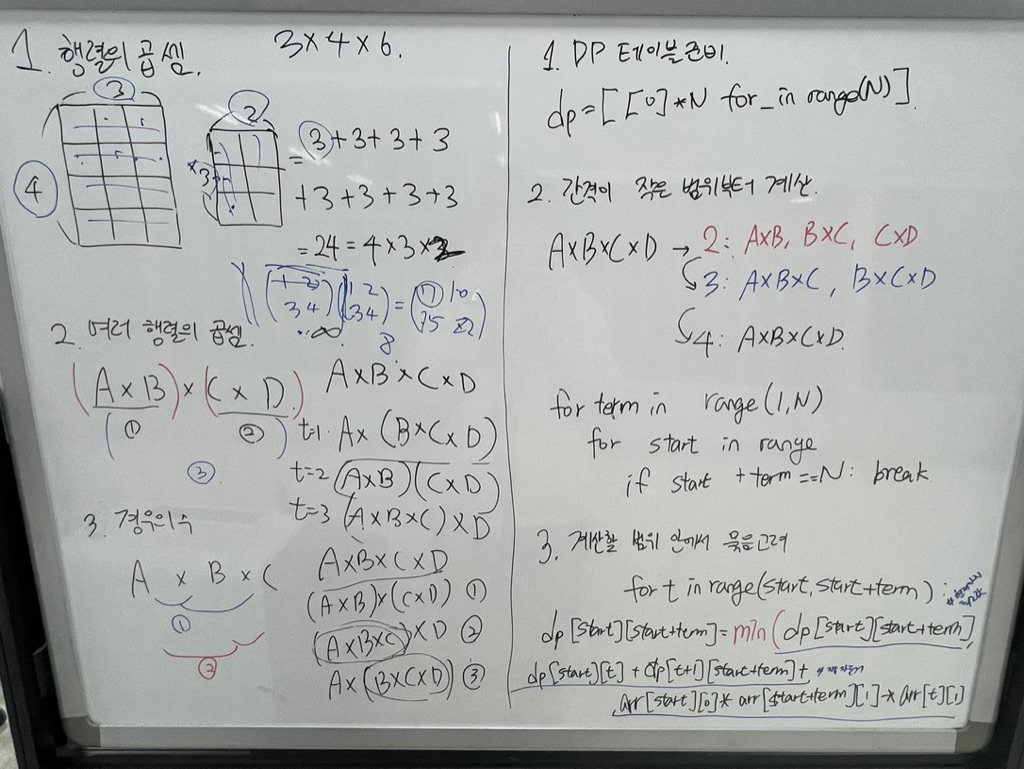 1. 행렬의 곱셈.
3×4×6.
3
4
2
×3
= 3+3+3+3
+3+3+3+3
=24=4×3×2
(1 2
3 4)(1 2
3 4)=(7 10
15 22)
8
2. 여러 행렬의 곱셈.
(A×B)×(C×D)
①
②
③
A×B×C×D
t=1. A×(B×C×D)
t=2 (A×B)(C×D)
t=3 (A×B×C)×D
3. 경우의 수
A × B × C
①
②
A×B×C×D
(A×B)×(C×D) ①
(A×B×C)×D ②
A×(B×C×D) ③
1. DP 테이블 준비.
dp=[[0]*N for_in range(N)]
2. 간격이 작은 범위부터 계산.
A×B×C×D → 2: A×B, B×C, C×D
3: A×B×C, B×C×D
4: A×B×C×D.
for term in range(1,N)
for start in range
if start +term==N: break
3. 계산할 범위 안에서 묶음고려
for t in range(start,start+term):
dp[start][start+term]=min(dp[start][start+term],
dp[start][t]+dp[t+1][start+term]+
arr[start][0]*arr[start+term][1]*arr[t][1]